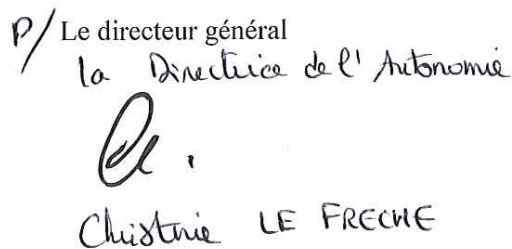 P/ Le directeur général
la Directrice de l'Autonomie
Christine LE FRECHE